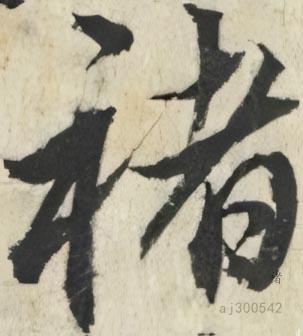 褚
aj300542